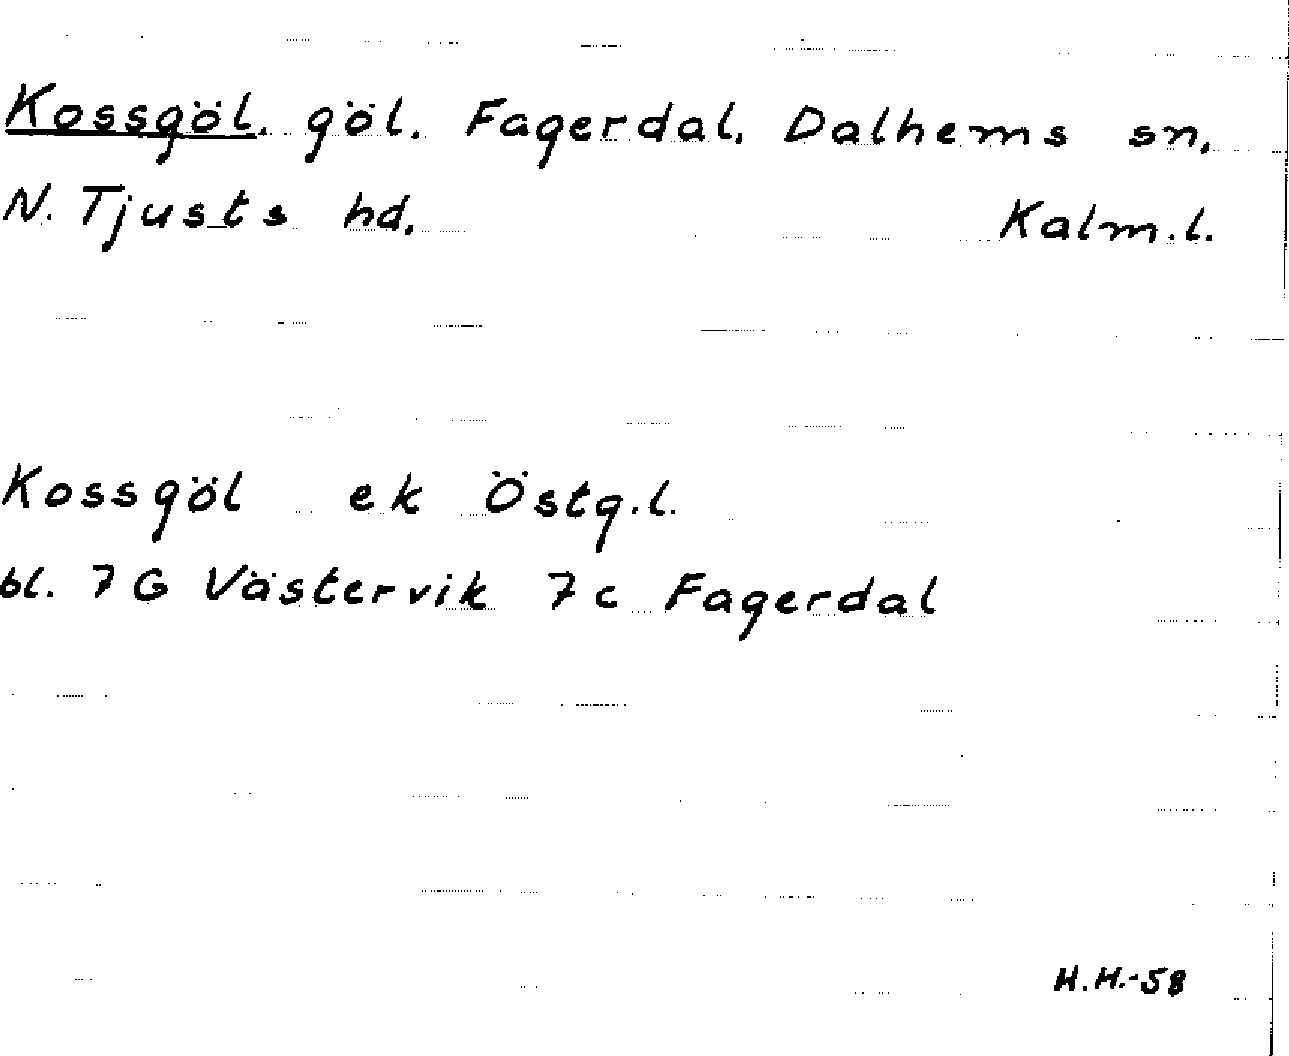 Kossgöl. göl. Fagerdal. Dalhems sn.
N. Tjusts hd. Kalm.l.
Kossgöl ek Östg.l.
bl. 7 G Västervik 7 c Fagerdal
H.H.-58